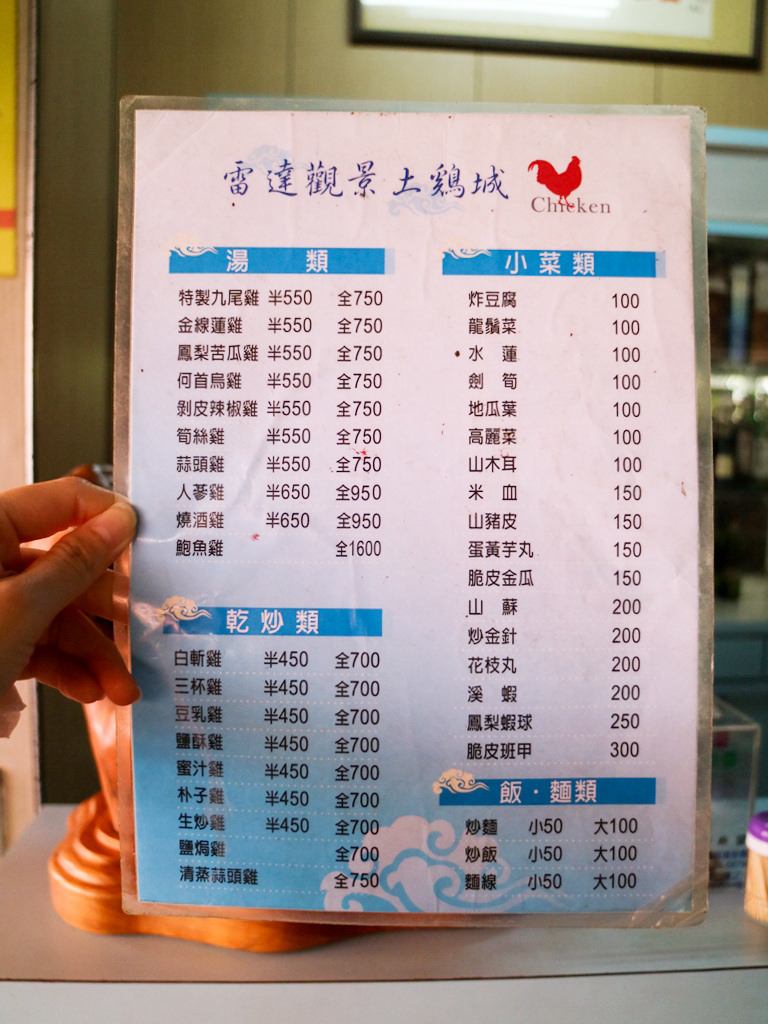 雷達觀景土鷄城
Chicken
湯類
特製九尾雞 半550 全750
金線蓮雞 半550 全750
鳳梨苦瓜雞 半550 全750
何首烏雞 半550 全750
剝皮辣椒雞 半550 全750
筍絲雞 半550 全750
蒜頭雞 半550 全750
人蔘雞 半650 全950
燒酒雞 半650 全950
鮑魚雞 全1600
乾炒類
白斬雞 半450 全700
三杯雞 半450 全700
豆乳雞 半450 全700
鹽酥雞 半450 全700
蜜汁雞 半450 全700
朴子雞 半450 全700
生炒雞 半450 全700
鹽焗雞 全700
清蒸蒜頭雞 全750
小菜類
炸豆腐 100
龍鬚菜 100
水蓮 100
劍筍 100
地瓜葉 100
高麗菜 100
山木耳 100
米血 150
山豬皮 150
蛋黃芋丸 150
脆皮金瓜 150
山蘇 200
炒金針 200
花枝丸 200
溪蝦 200
鳳梨蝦球 250
脆皮班甲 300
飯·麵類
炒麵 小50 大100
炒飯 小50 大100
麵線 小50 大100